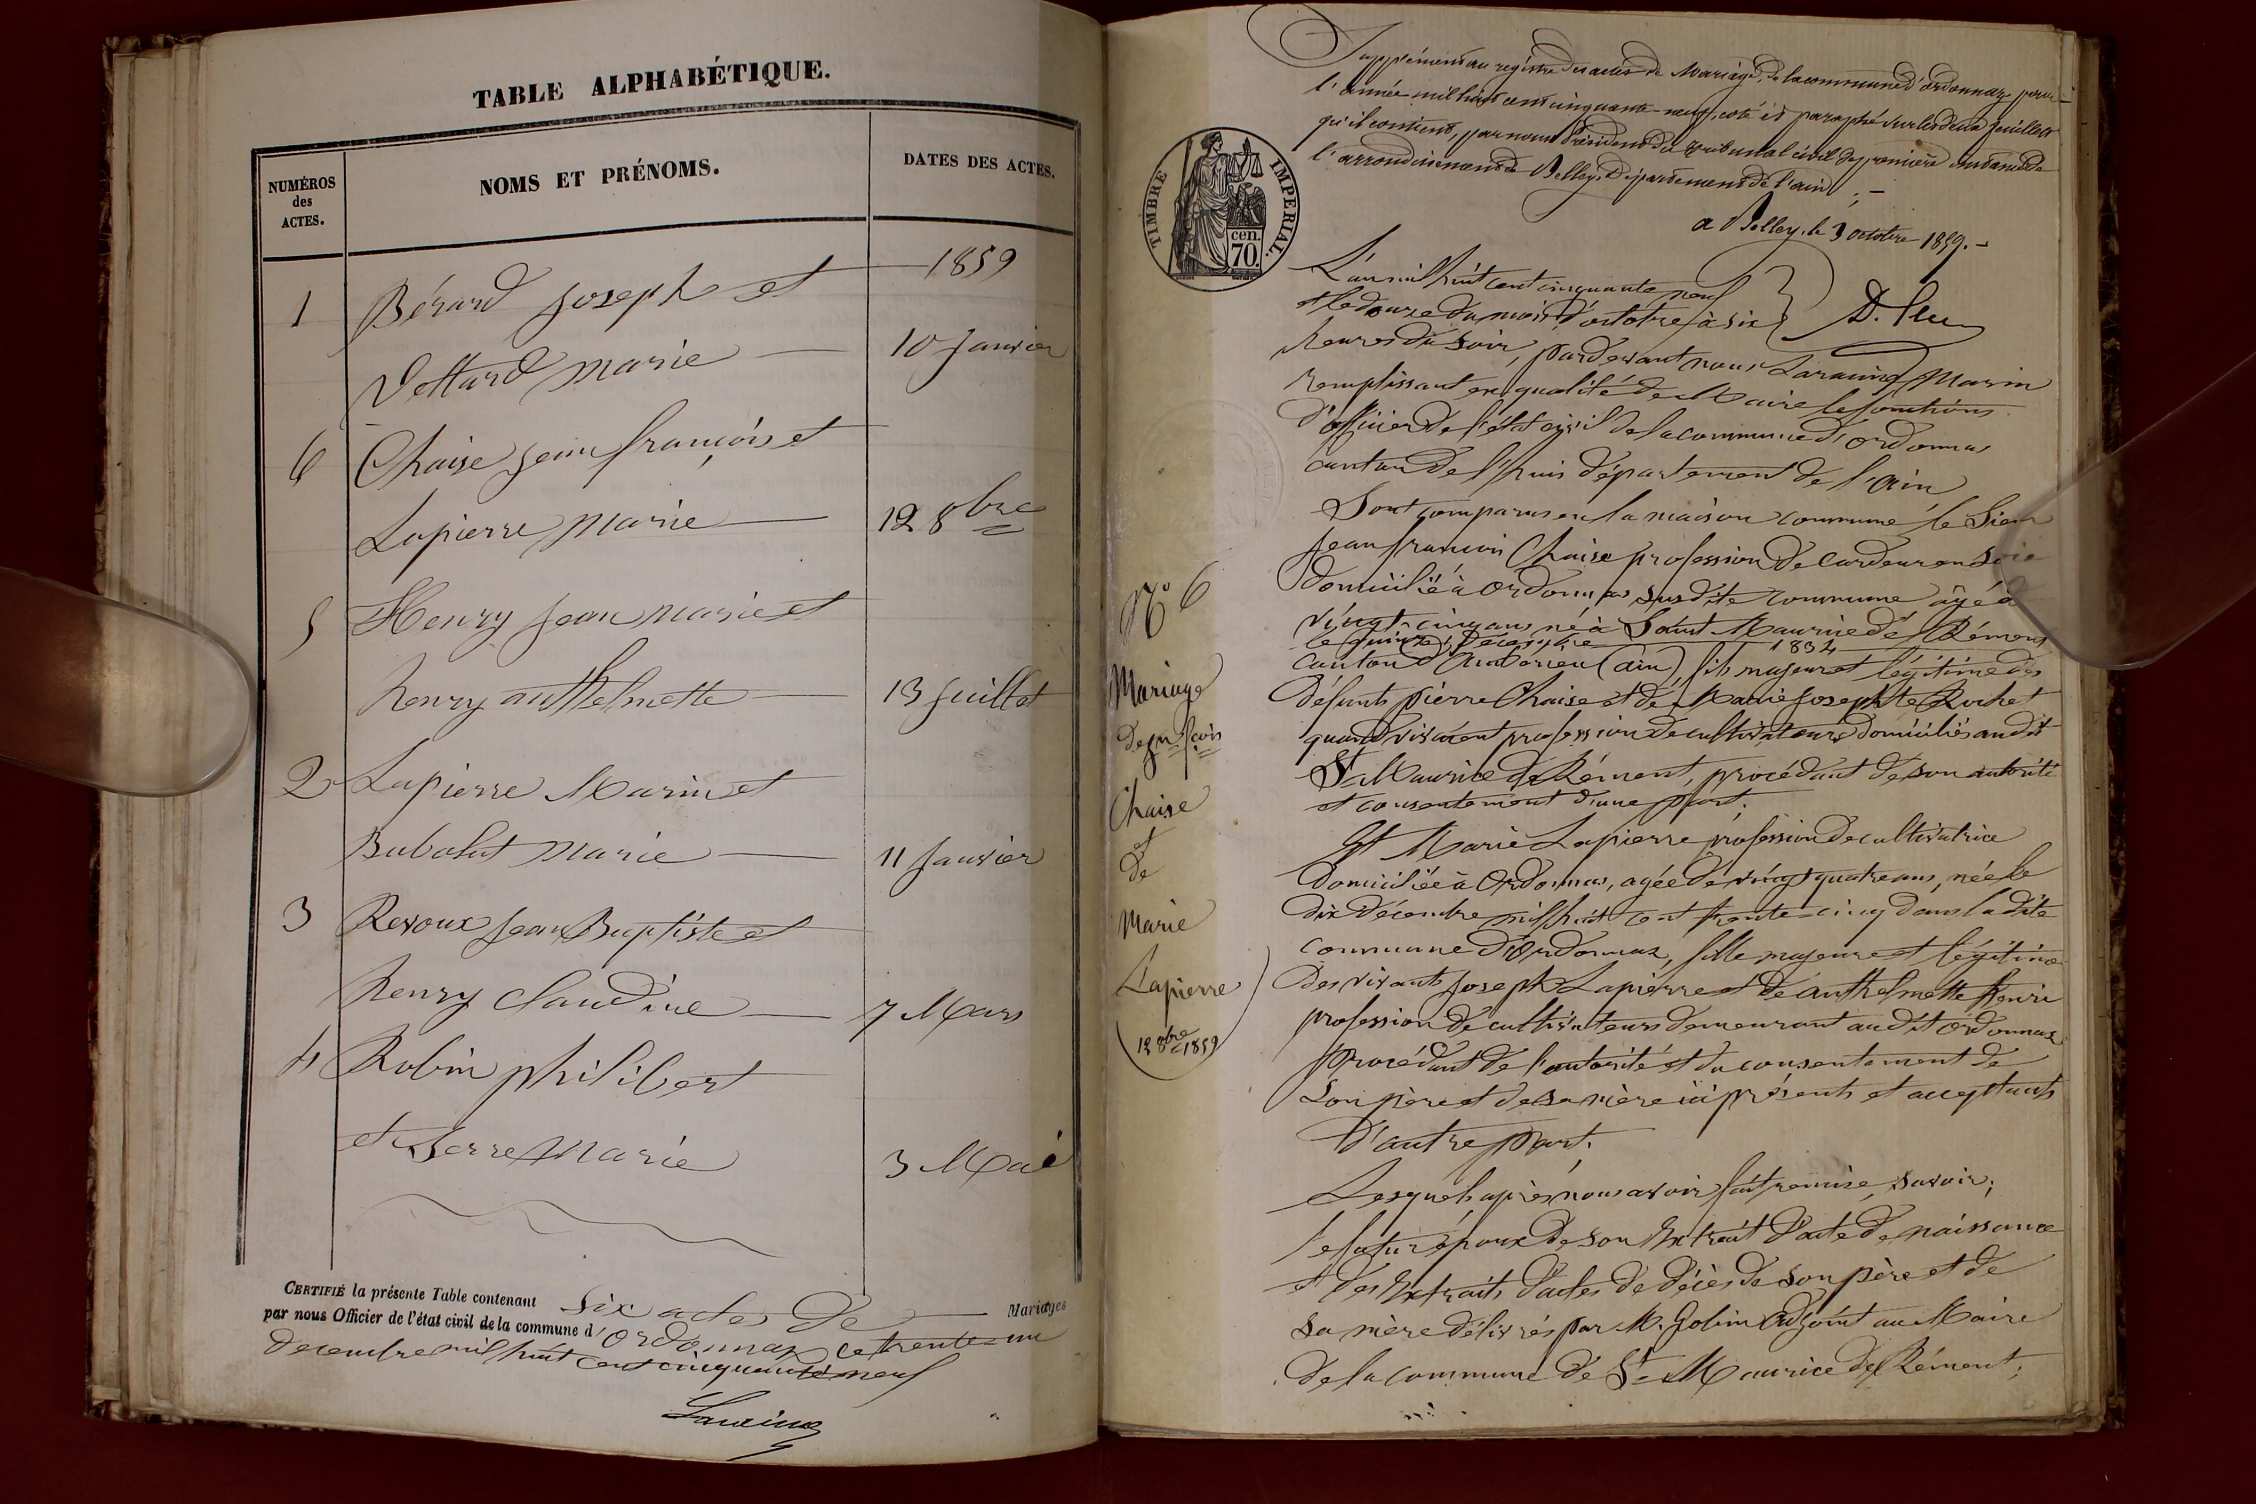 TABLE ALPHABÉTIQUE.
NUMÉROS des ACTES.
NOMS ET PRÉNOMS.
DATES DES ACTES.
1859
1 Bérard Joseph et
Vettard Marie 10 Janvier
6 Chaise Jean françois et
Lapierre Marie 12 8bre
5 Henry Jean Marie et
henry anthelmette 13 Juillet
2 Lapierre Marin et
Marie 11 Janvier
3 Revoux Jean Baptiste et
henry Claudine 7 Mars
4 Robin philibert
et Serre Marie 3 Mai
CERTIFIÉ la présente Table contenant six actes de Mariages
par nous Officier de l'état civil de la commune d'Ordonnaz ce trente-un
decembre mil huit cent cinquante neuf
Supplément au registre des actes de Mariage, de la commune d'ordonnaz pour
l'année mil huit cent cinquante-neuf, coté et paraphé sur les deux feuillets
qu'il contient, par nous Président du tribunal civil de première instance de
l'arrondissement de Belley, Département de l'ain, –
a Belley, le 3 octobre 1859. –
TIMBRE IMPERIAL.
cen.
70.
L'an mil huit cent cinquante neuf
et le douze du mois d'octobre à six
heures du soir, pardevant nous Marin
remplissant en qualité de Maire les fonctions
d'officier de l'état civil de la commune d'ordonnas
canton de l'huis département de l'ain
Sont comparus en la maison commune le Sieur
Jean francois Chaise profession de cardeur en Soie
domicilié à Ordonnas susdite commune âgé de
vingt-cinq ans né à Saint Maurice de Rémens
le quinze Décembre 1834
canton d'Ambérieu (ain), fils majeur et légitime des
défunts pierre Chaise et de Marie Josephte Rochet
quand vivaient profession de cultivateurs domiciliés audit
St Maurice de Rément, procédant de son autorité
et consentement d'une part.
Et Marie Lapierre profession de cultivatrice
domiciliée à Ordonnas, agée de vingt quatre ans, née le
dix décembre mil huit cent trente-cinq dans la dite
commune d'Ordonnaz, fille majeure et légitime
des vivants Joseph Lapierre et de anthelmette henri
profession de cultivateurs demeurant audit Ordonnaz
procédant de l'autorité et du consentement de
son père et de sa mère ici présents et acceptants
D'autre part.
Lesquels après nous avoir fait remise, savoir;
le futur époux de son Extrait d'acte de naissance
et des Extraits d'actes de décès de son père et de
sa mère délivrés par M. Gobin adjoint au Maire
de la commune de St Maurice de Rément;
No 6
Mariage
de jn fcois
Chaise
et
de
Marie
Lapierre
(12 8bre 1859)